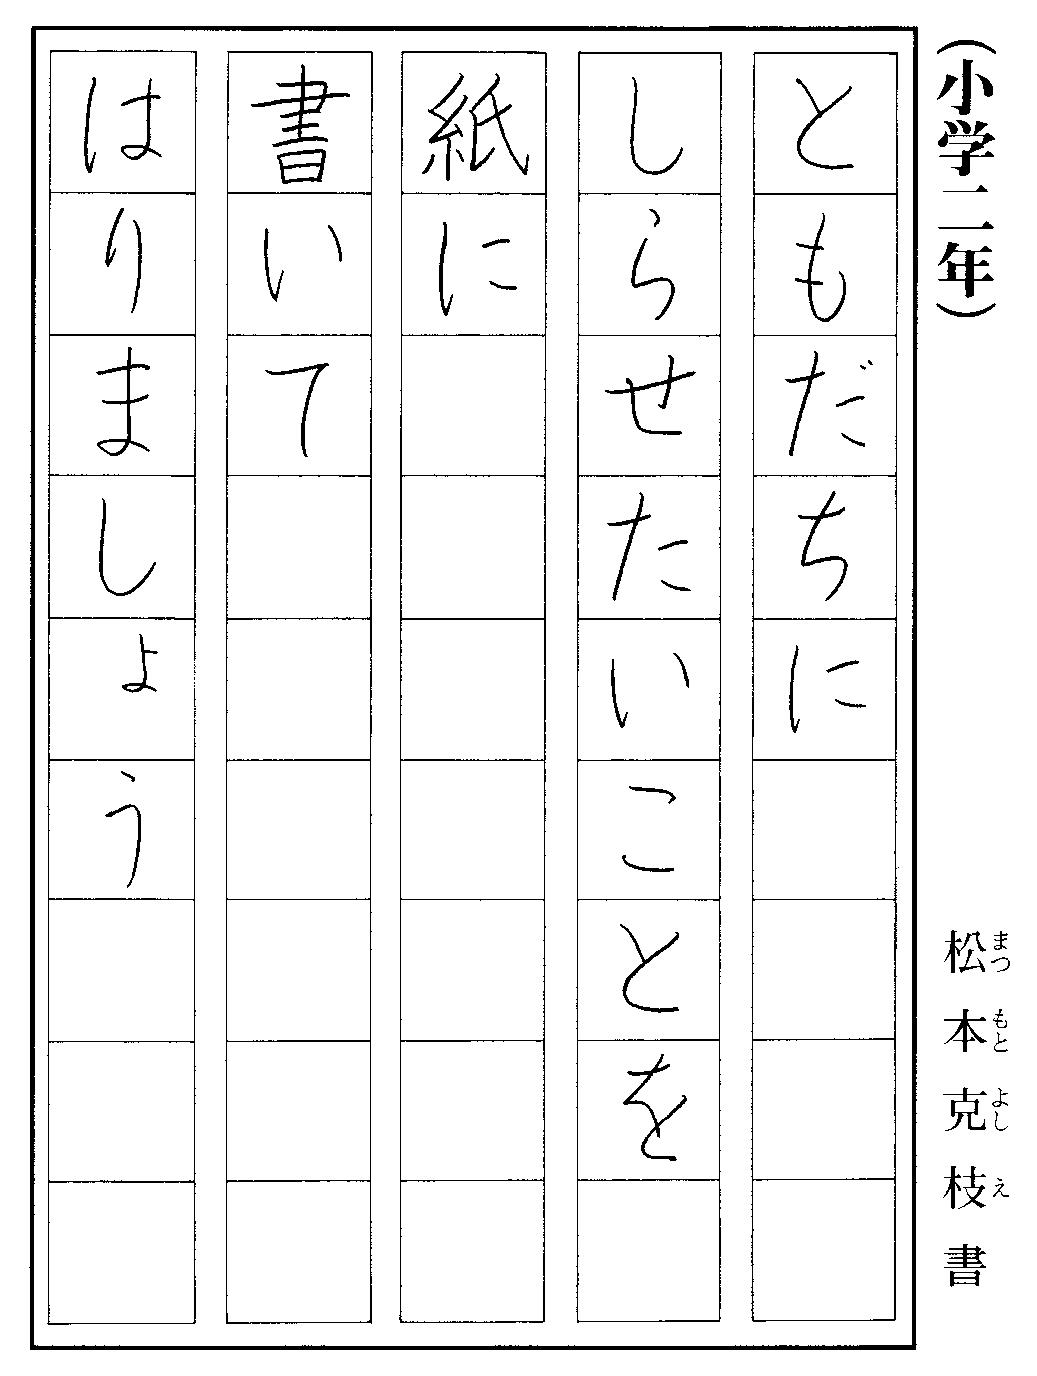 （小学二年）
松本克枝書
まつもとよしえ
ともだちに
しらせたいことを
紙に
書いて
はりましょう